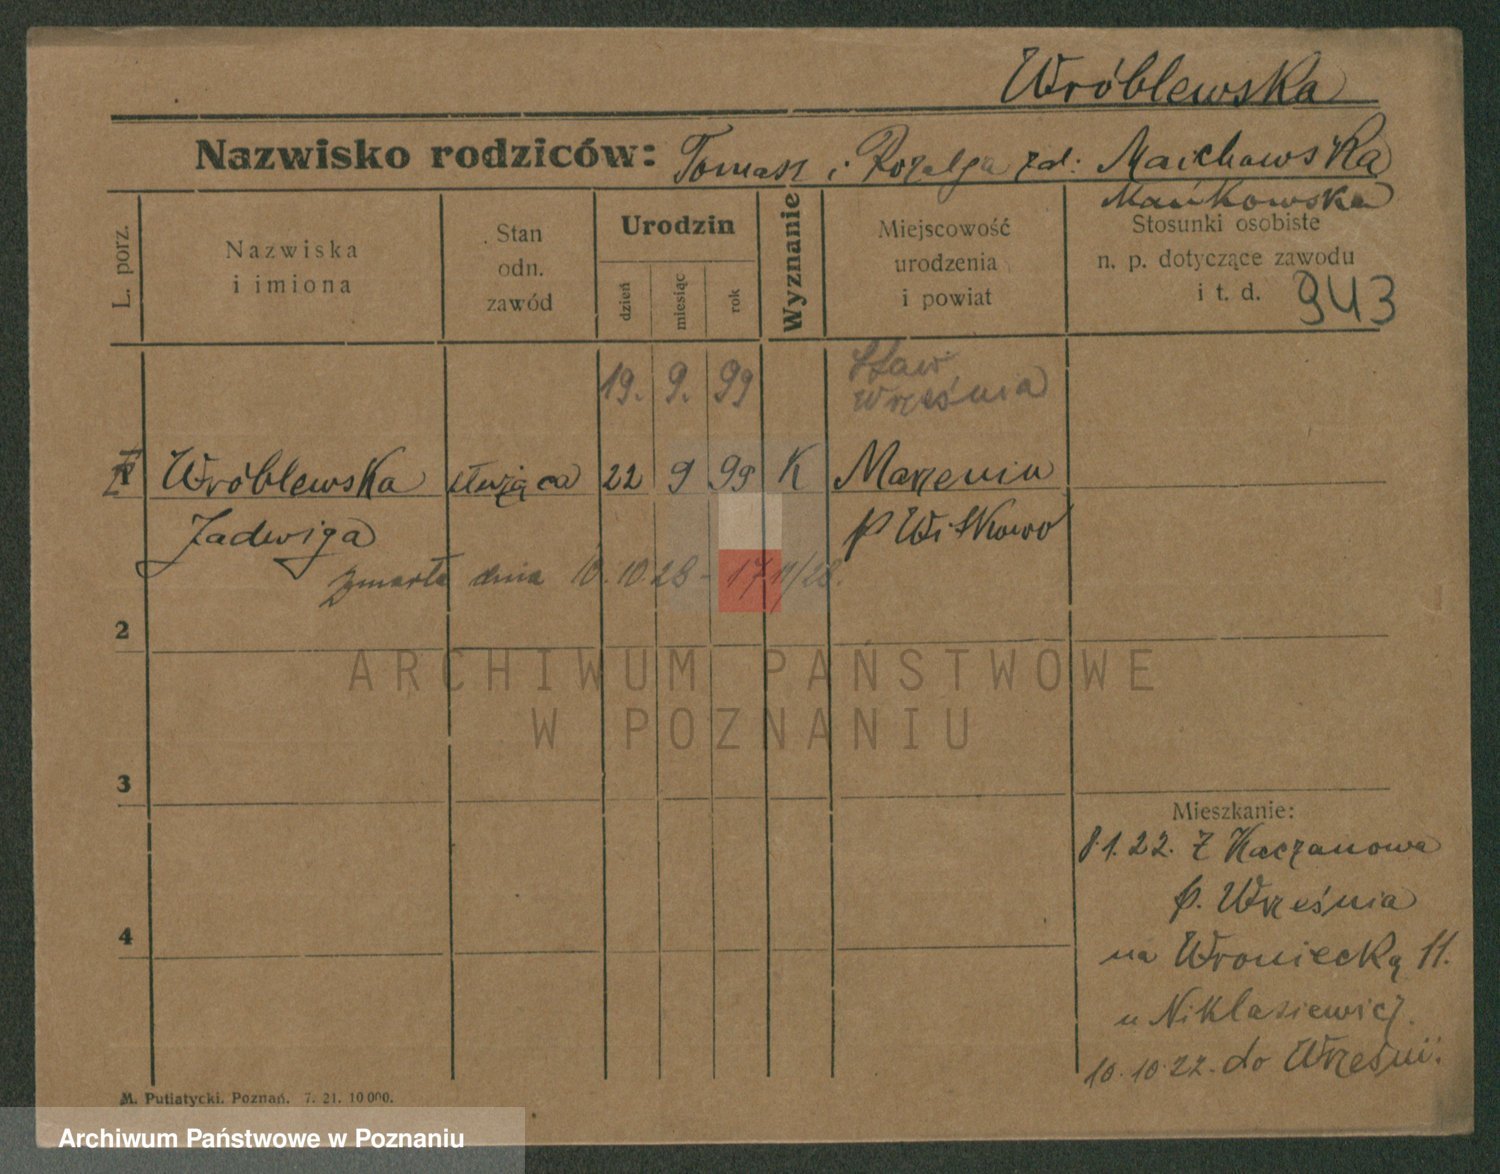 Wróblewska
Nazwisko rodziców: Tomasz i Rozalja zd. Maichowska
Mańkowska
L. porz.
Nazwiska
i imiona
Stan
odn.
zawód
Urodzin
dzień
miesiąc
rok
Wyznanie
Miejscowość
urodzenia
i powiat
Stosunki osobiste
n. p. dotyczące zawodu
i t. d. 943
19. 9. 99 Staw
Września
Wróblewska służąca 22 9 99 K Marzenin
Jadwiga p Witkowo
zmarła dnia 10.10 28 - 17/11/28.
2
ARCHIWUM PAŃSTWOWE
W POZNANIU
3
Mieszkanie:
8.1.22. z Kaczanowa
p. Września
4
na Wroniecką 11.
u Niklasiewicz.
10.10.22. do Wrześni.
M. Putiatycki. Poznań. 7. 21. 10 000.
Archiwum Państwowe w Poznaniu